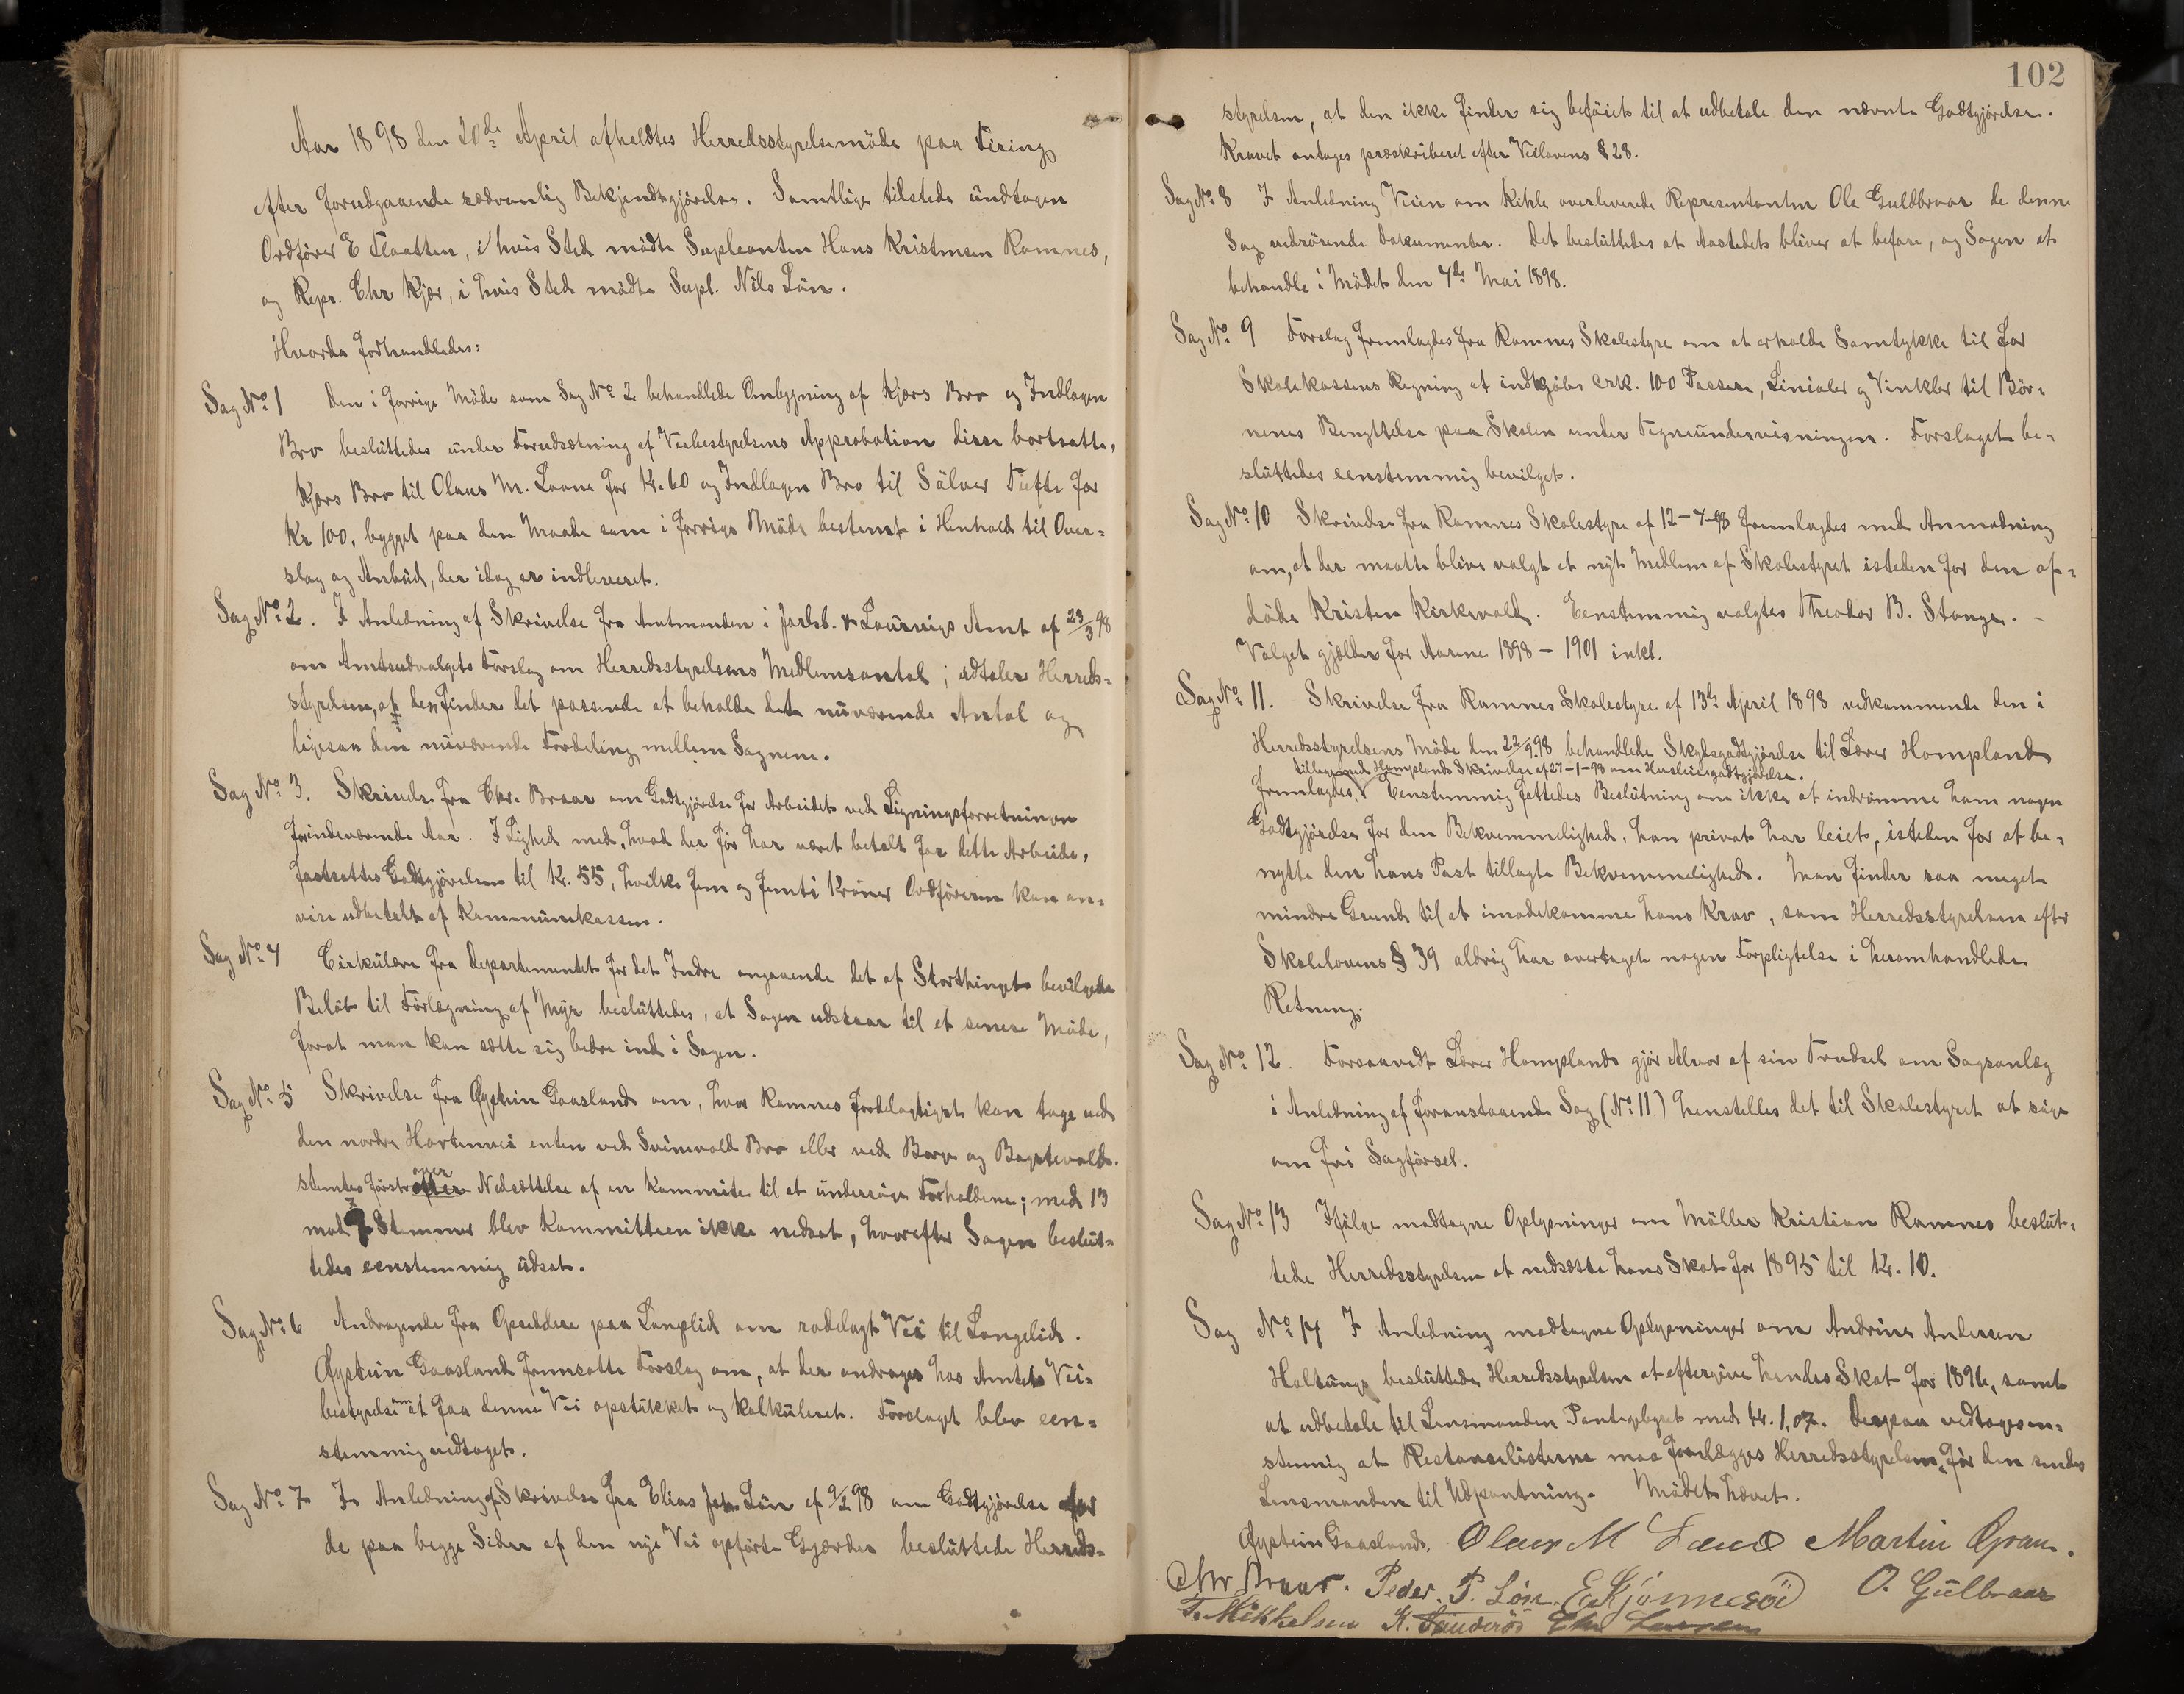 Aar 1898 den 20de April afholdtes Herredsstyrelsemöde paa Firing
efter forudgaaende sædvanlig Bekjendtgjörelse. Samtlige tilstede undtagen
Ordförer E Flaatten, i hvis Sted mödte Supleanten Hans Kristensen Ramnes,
og Repr. Chr Kjær, i hvis Sted mödte Supl. Nils Lön.
Hvorda forhandledes:
Sag No 1 Den i forrige Möde som Sag No 2 behandlede Ombygning af Kjærs Bro og Indlagen
Bro besluttedes under Forudsætning af Veibestyrelsens Approbation disse bortsatte,
Kjærs Bro til Olaus M. Laane for Kr. 60 og Indlagen Bro til Sölver Tufte for
Kr 100, bygget paa den Maade som i forrige Möde bestemt i Henhold til Over-
slag og Anbud, der idag er indleveret.
Sag No 2. I Anledning af Skrivelse fra Amtmanden i Jarlsb. & Laurvigs Amt af 23/3 98
om Amtsudvalgets Forslag om Herredsstyrelsens Medlemsantal; udtaler Herreds-
styrelsen, at den finder det passende at beholde det nuværende Antal og
ligesaa den nuværende Fordeling mellem Sognene.
Sag No 3. Skrivelse fra Chr. Braar om Godtgjörelse for Arbeidet ved Ligningsforretningen
forindeværende Aar. I Lighed med, hvad der för har været betalt for dette Arbeide,
fastsattes Godtgjörelsen til Kr. 55, hvilke fem og femti Kroner Ordföreren kan an-
vise udbetalt af Kommunekassen.
Sag No 4 Cirkulære fra Departementet for det Indre angaaende det af Storthinget bevilgede
Belöb til Förlægning af Myr besluttedes, at Sagen udstaar til et senere Möde,
forat man kan sætte sig bedre ind i Sagen.
Sag No 5 Skrivelse fra Øystein Gaasland om, hvor Ramnes fordelagtigst kan tage ved
den nordre Hortenvei enten ved Svinevold Bro eller ved Borge og Bogstevold.
stemtes först over Nedsættelse af en Kommite til at undersöge Forholdene; med 13
mod 7 Stemmer blev Kommitteen ikke nedsat, hvorefter Sagen beslut-
tedes eenstemmig udsat.
Sag No 6 Andragende fra Opsiddere paa Langlid om rodelagt Vei til Langelid.
Øystein Gaasland fremsatte Forslag om, at der andrages hos Amtets Vei-
bestyrelse om at faa denne Vei opstukket og kalkuleret. Forslaget blev een-
stemmig vedtaget.
Sag No 7 I Anledning af Skrivelse fra Elias Joh. Lön af 9/2 98 om Godtgjörelse for
de paa begge Sider af den nye Vei opförte Gjærder besluttede Herreds-
102
styrelsen, at den ikke finder sig beföiet til at udbetale den nævnte Godtgjörelse.
Kravet antages præskriberet efter Veilovens § 28.
Sag No 8 I Anledning Veien om Kihle overleverede Representanten Ole Guldbraar de denne
Sag vedrörende Dokumenter. Det besluttedes at Aastedet bliver at befare, og Sagen at
behandle i Mödet den 4de Mai 1898.
Sag No 9 Forslag fremlagdes fra Ramnes Skolestyre om at erholde Samtykke til for
Skolekassens Regning at indkjöbe cirk. 100 Passere, Linialer og Vinkler til Bör-
nenes Benyttelse paa Skolen under Tegneundervisningen. Forslaget be-
sluttedes eenstemmig bevilget.
Sag No 10 Skrivelse fra Ramnes Skolestyre af 12-4-98 fremlagdes med Anmodning
om, at der maatte blive valgt et nyt Medlem af Skolestyret isteden for den af-
döde Kristen Kirkevold. Eenstemmig valgtes Theodor B. Stange. –
Valget gjælder for Aarene 1898 – 1901 inkl.
Sag No 11. Skrivelse fra Ramnes Skolestyre af 13de April 1898 vedkommende den i
Herredsstyrelsens Möde den 22/2 98 behandlede Skydsgodtgjörelse til Lærer Hompland
tilligemed Homplands Skrivelse af 27-1-98 om Husleiegodtgjörelse.
fremlagdes, V Eenstemmig fattedes Beslutning om ikke at indrömme ham nogen
Godtgjörelse for den Bekvemmelighed, han privat har leiet, isteden for at be-
nytte den hans Post tillagte Bekvemmelighed. Man finder saa meget
mindre Grund til at imödekomme hans Krav, som Herredsstyrelsen efter
Skolelovens § 39 aldrig har overtaget nogen Forpligtelse i heromhandlede
Retning.
Sag No 12. Forsaavidt Lærer Hompland gjör Alvor af sin Trudsel om Sagsanlæg
i Anledning af foranstaaende Sag (No 11.) henstilles det til Skolestyret at söge
om fri Sagförsel.
Sag No 13 Ifölge modtagne Oplysninger om Möller Kristian Ramnes beslut-
tede Herredsstyrelsen at nedsætte hans Skat for 1895 til Kr. 10.
Sag No 14 I Anledning modtagne Oplysninger om Andrine Andersen
Holtunge besluttede Herredsstyrelsen at eftergive hendes Skat for 1896, samt
at udbetale til Lensmanden Pantegebyret med Kr. 1,07. Derpaa vedtoges en-
stemmig at Restancelisterne maa forelægges Herredsstyrelsen, för den sendes
Lensmanden til Udpantning. Mödet hævet.
Øystein Gaasland. Olaus M Laane Martin Gran.
Chr Braar. Peder. P. Lön. E Kjönneröd O. Gulbraar
T. Mikkelsen K. Sönderöd Chr Larsen